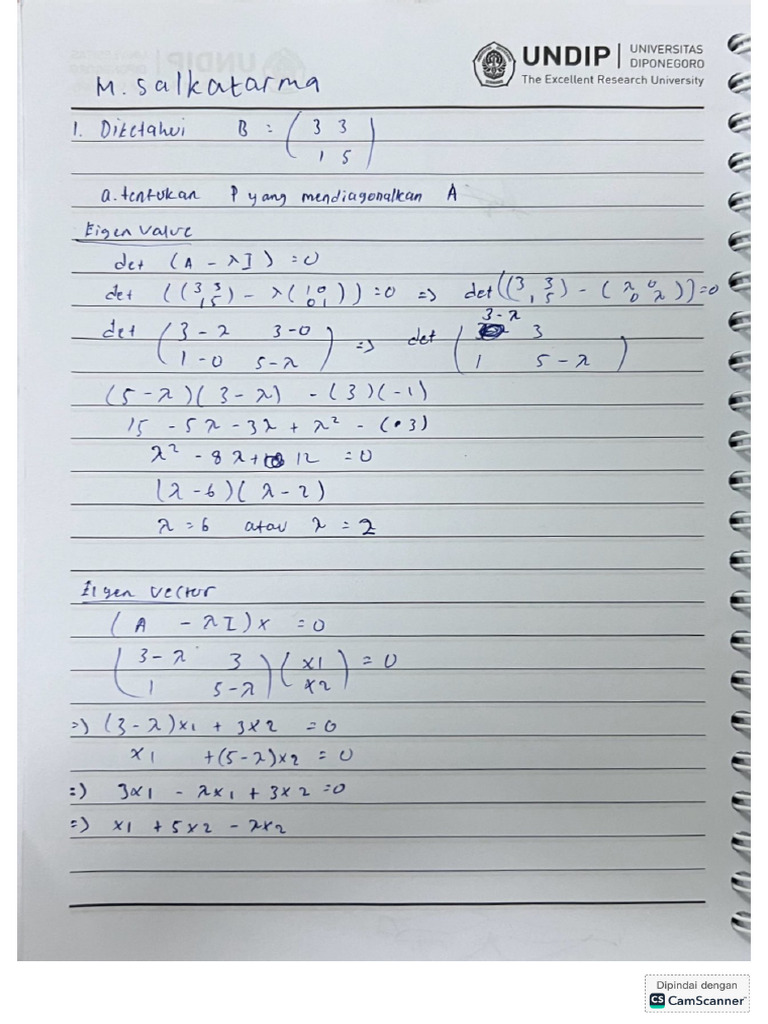 UNDIP | UNIVERSITAS DIPONEGORO
The Excellent Research University
M. Salkatarma
1. Diketahui B = (3 3
1 5)
a. tentukan P yang mendiagonalkan A
Eigen value
det (A - λI) = 0
det ((3 3 1 5) - λ(1 0 0 1)) = 0 => det((3 3 1 5) - (λ 0 0 λ)) = 0
det (3-λ 3-0 1-0 5-λ) => det (3-λ 3 1 5-λ)
(5-λ)(3-λ) - (3)(-1)
15 - 5λ - 3λ + λ² - (3)
λ² - 8λ + 12 = 0
(λ-6)(λ-2)
λ = 6 atau λ = 2
Eigen vector
(A - λI)x = 0
(3-λ 3 1 5-λ)(x1 x2) = 0
=> (3-λ)x1 + 3x2 = 0
x1 + (5-λ)x2 = 0
=> 3x1 - λx1 + 3x2 = 0
=> x1 + 5x2 - λx2
Dipindai dengan
CS CamScanner